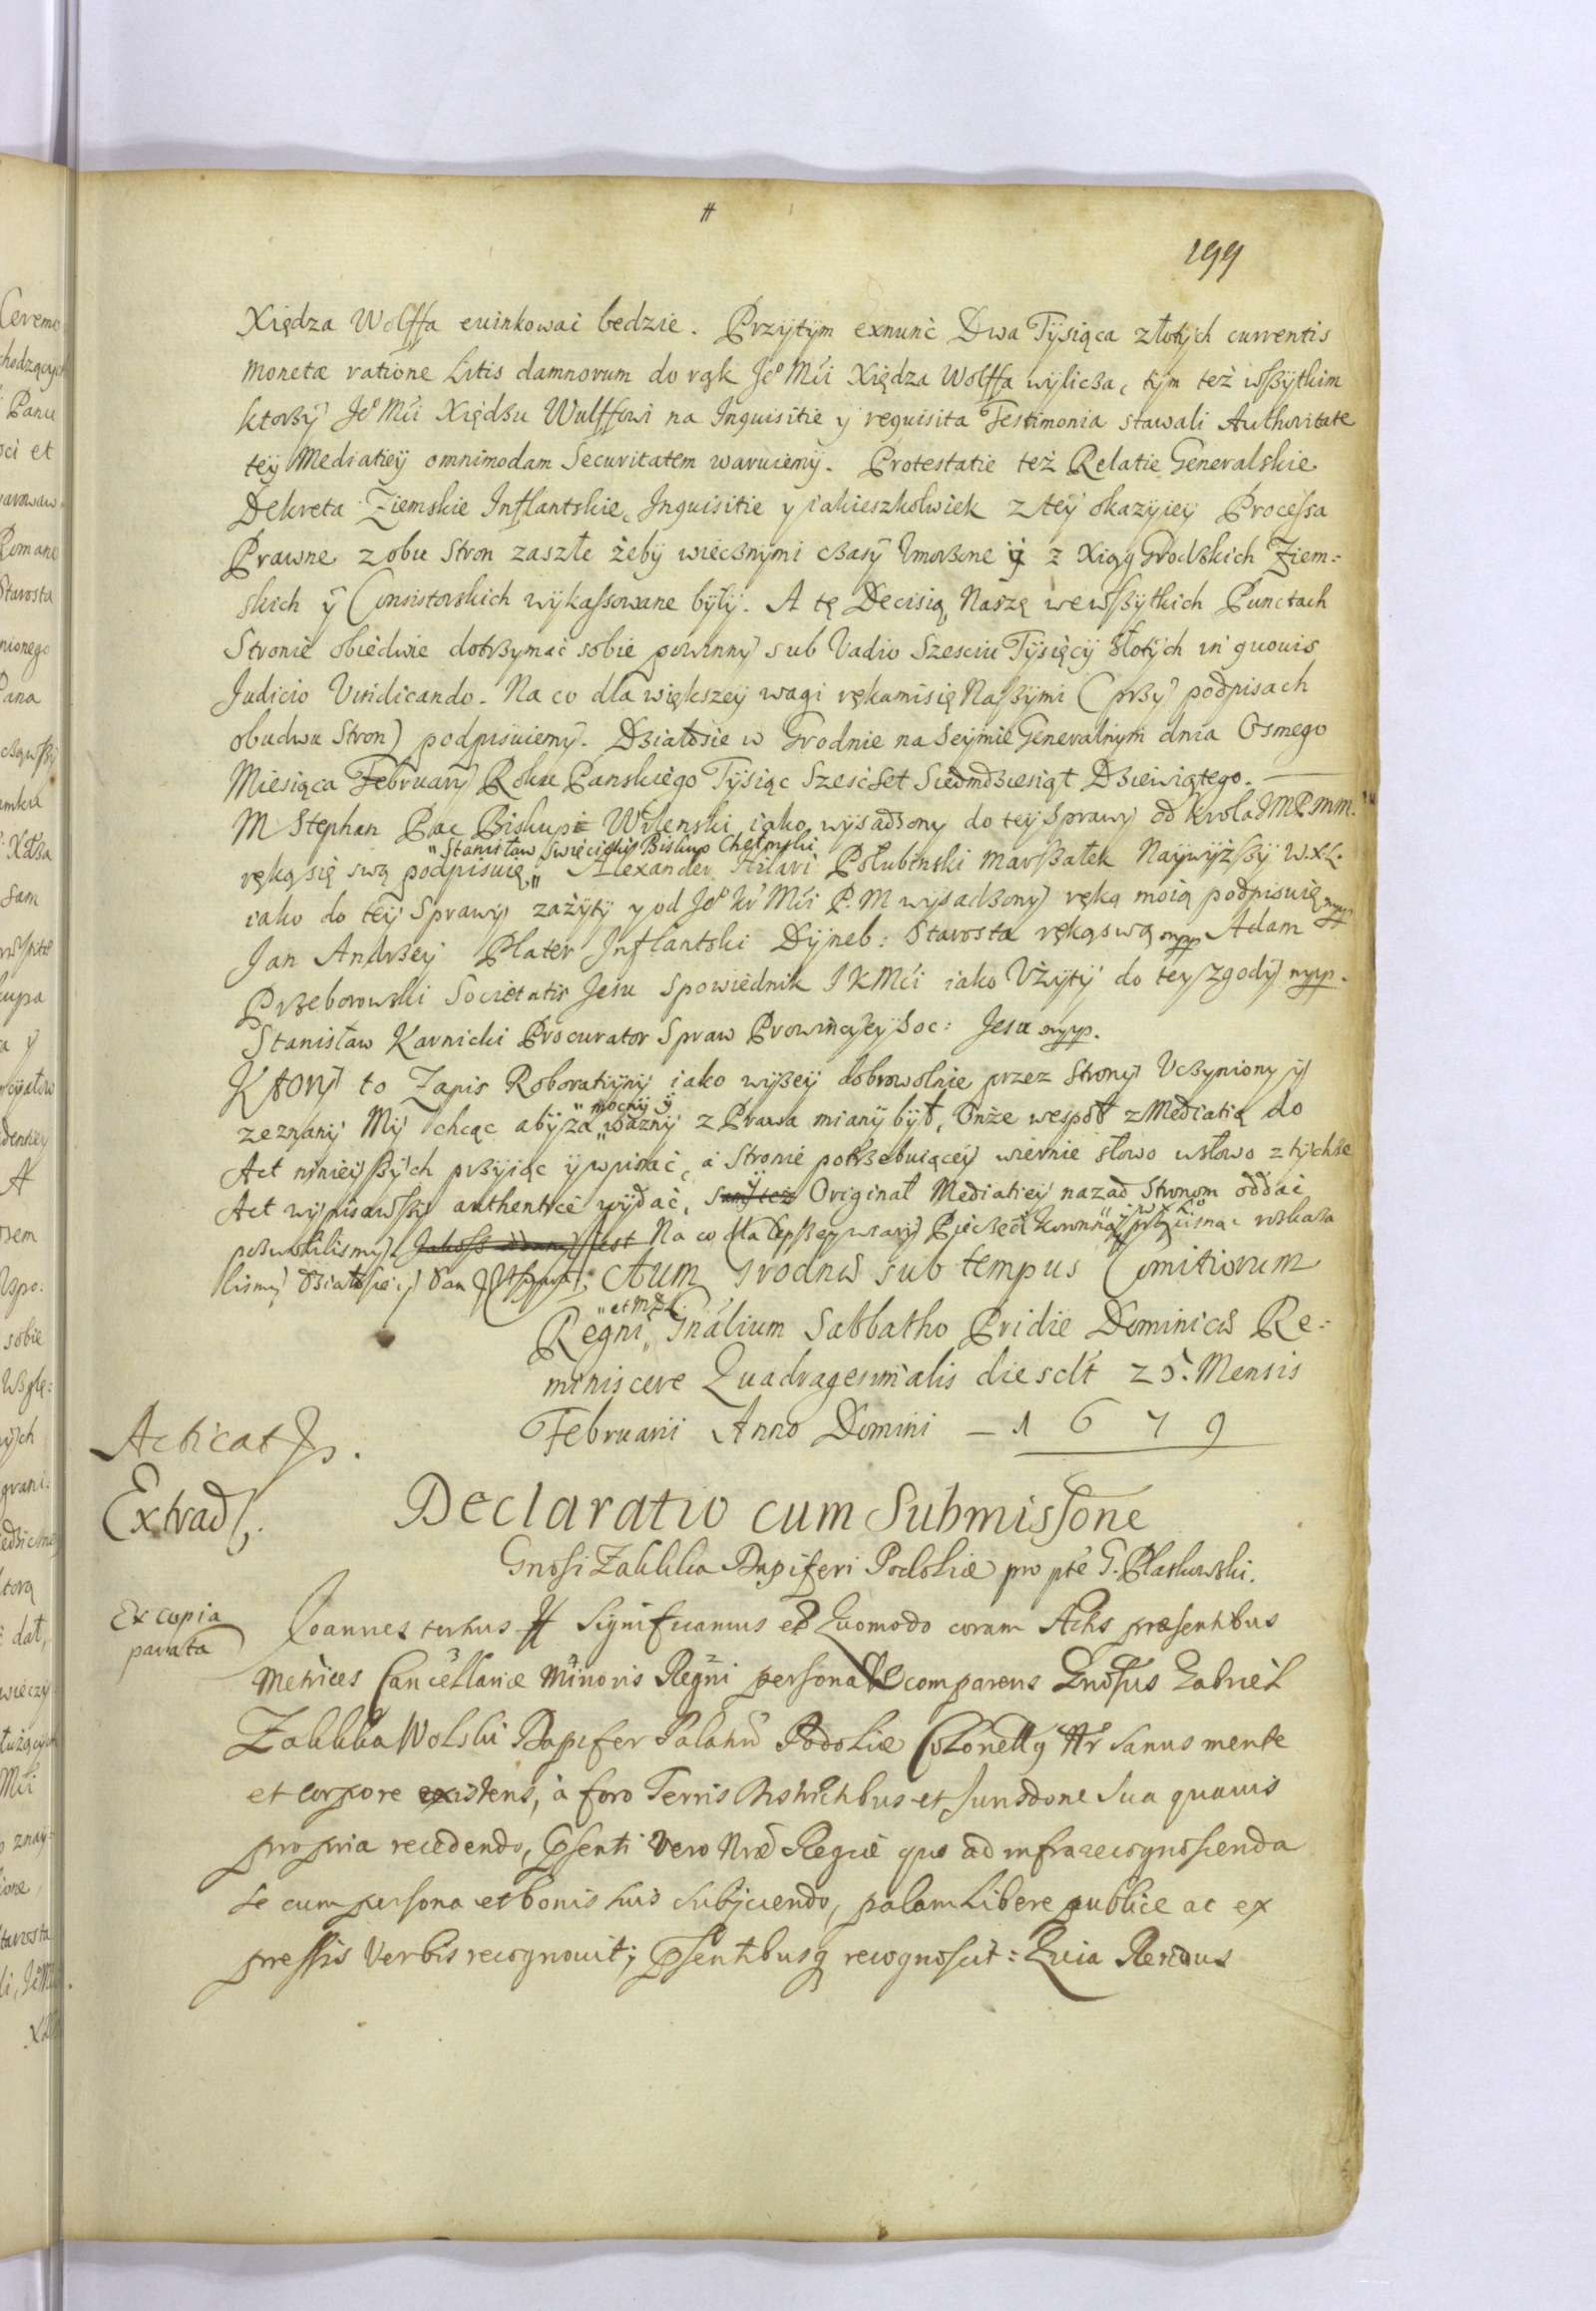 199
Xiędza Wolffa euinkowac bedzie. Przytym exnunc Dwa Tysiąca złotych currentis
monetæ ratione Litis damnorum do rąk Jeº Mśi Xiędza Wolffa wylicza, tym też wszytkim
ktorzy Jeº Mśi Xiędzu Wulffowi na Inquisitie y requisita Testimonia stawali Authoritate
tey Mediatiey omnimodam Securitatem waruiemy. Protestatie też Relatie Generalskie
Dekreta Ziemskie Inflantskie, Inquisitie y iakieszkolwiek z tey okazyiey Processa
Prawne z obu Stron zaszłe żeby wiecznymi czasy Vmorzone y z Xiąg Grodzkich Ziem=
skich y Consistorskich wykassowane były. A tę Decisią Naszę wewszytkich Punctach
Stronie obiedwie dotrzymać sobie powinny sub Vadio Szesciu Tysięcy złotych in quouis
Judicio Vindicando. Na co dla większey wagi rękamisię Naszymi (przy podpisach
obudwu Stron) podpisuiemy. Działosie w Grodnie na Seymie Generalnym dnia Osmego
Miesiąca February Roku Panskiego Tysiąc Szescset Siedmdziesiąt Dziewiątego.
M Stephan Pac Biskup Wilenski iako wysadzony do tey Sprawy od Krola JMP.mm.
"Stanisław Swięcicki Biskup Chełmski
ręką się swą podpisuię" Alexander Hilari Połubinski Marszałek Naywyższy W.X.L.
iako do tey Sprawy zażyty y od Jeº Kr Mśi P. M wysadzony ręką moią podpisuię mpp
Jan Andrzey Plater Inflantski Dyneb: Starosta rękąswą mpp Adam
Przeborowski Societatis Jesu Spowiednik J K Mśi iako Vżyty do tey zgody mpp.
Stanisław Karnicki Procurator Spraw Prowincyey Soc: Jesu mpp.
Ktory to Zapis Roboratiyny iako wyzey dobrowolnie przez Strony Vczyniony y
"mocny y
zeznany My chcąc aby za "wazny z Prawa miany był, Onże wespoł z Mediatią do
Act ninieyszych przyiąc y wpisać, a Stronie potrzebuiącey wiernie słowo wsłowo z tychze
Act wypisawszy authentice wydać, Original Mediatiey nazad Stronom oddac
pozwolilismy. Na co dla lepszey wiary Pieczęć Koronną przycisnąc rozkaza
lismy Działosie y Dan Actum Grodnæ sub tempus Comitiorum
"et MDL.
Regni" Gnalium Sabbatho Pridie Dominicæ Re=
miniscere Quadragesimalis die sclt 25. Mensis
Februarii Anno Domini – 1679
Acticat
Extrad
Declaratio cum Submissione
Gnosi Zaklika Dapiferi Podoliæ pro pte G. Plaskowski.
Ex copia
parata
Joannes tertius Significamus et Quomodo coram Actis præsentibus
Metrices Cancellariæ Minoris Regni personal comparens Gnosus Gabriel
Zaklika Wolski Dapifer Palatū Podoliæ Colonellq Sanus mente
et corpore existens, à foro Terris Districtibus et Jurisdone Sua quauis
propria recedendo, psenti vero Nræ Regiæ quo ad infrarecognoscenda
se cum persona et bonis suis subjiciendo, palam Libere publice ac ex
pressis Verbis recognouit; psentibusq recognoscit: Quia Rendus